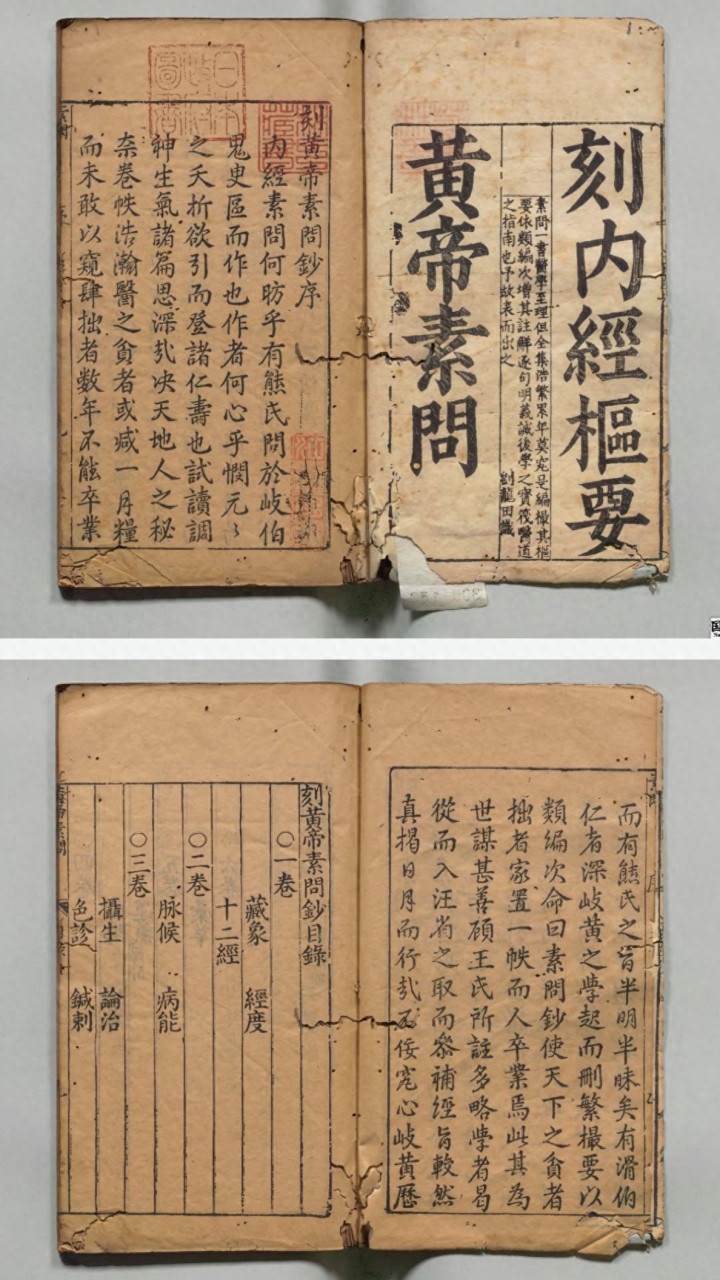 刻内經樞要
素問一書醫學至理但全集浩繁累年莫究是編撮其樞
要依類編次增其註解逐句明義誠後學之寶筏醫道
之指南也予故表而出之
劉龍田識
黃帝素問
刻黃帝素問鈔序
内經素問何昉乎有熊氏問於岐伯
鬼史區而作也作者何心乎憫元〻
之夭折欲引而登諸仁壽也試讀調
神生氣諸篇思深哉決天地人之秘
柰卷帙浩瀚醫之貧者或减一月糧
而未敢以窺肆拙者数年不能卒業
而有熊氏之旨半明半昧矣有滑伯
仁者深岐黃之學起而刪繁撮要以
類編次命曰素問鈔使天下之貧者
拙者家置一帙而人卒業焉此其為
世謀甚善顧王氏所註多略學者曷
從而入汪省之取而叅補經旨較然
真揭日月而行哉不佞究心岐黃歷
刻黃帝素問鈔目錄
〇一卷
藏象 經度
十二經
〇二卷
脉候 病能
〇三卷
攝生 論治
色診 鍼刺